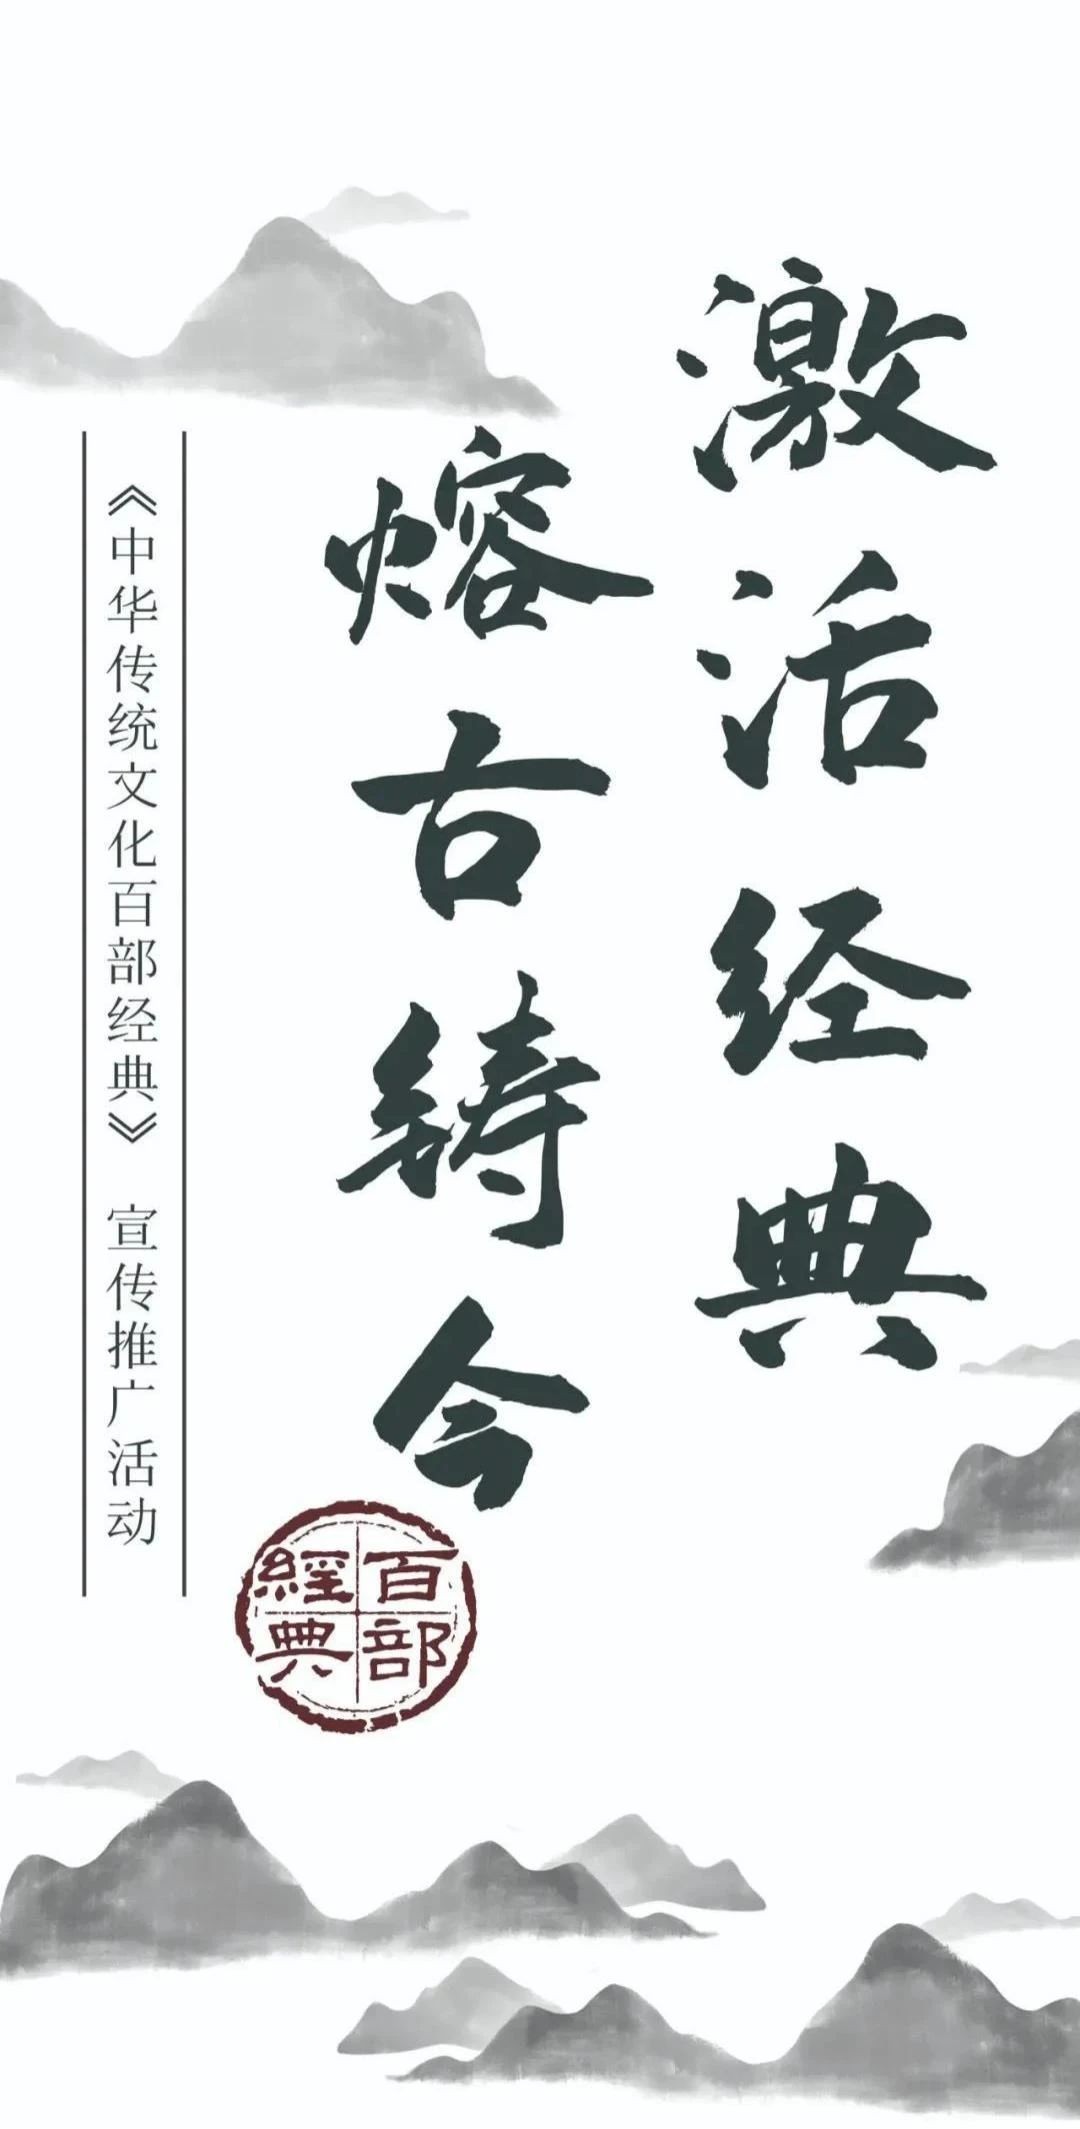 激活经典
熔古铸今
《中华传统文化百部经典》 宣传推广活动
百部
經典